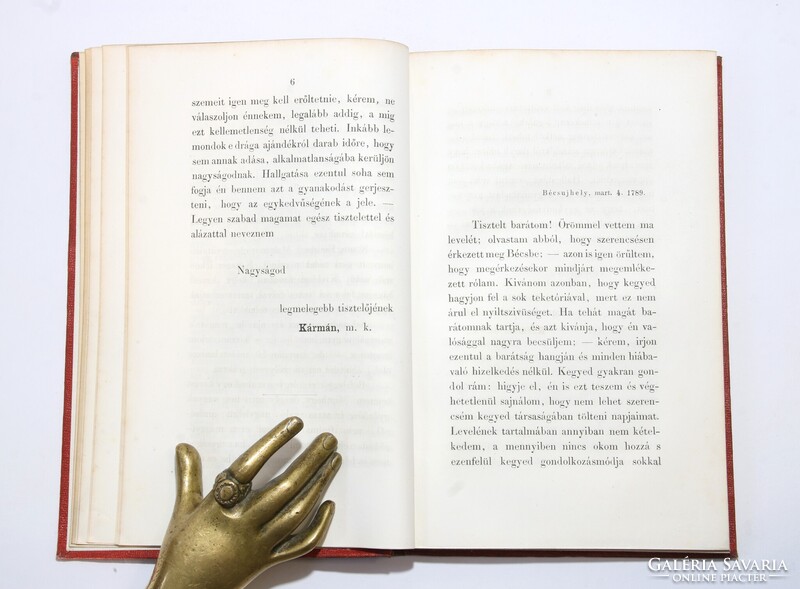 6
szemeit igen meg kell erőltetnie, kérem, ne
válaszoljon énnekem, legalább addig, a mig
ezt kellemetlenség nélkül teheti. Inkább le-
mondok e drága ajándékról darab időre, hogy
sem annak adása, alkalmatlanságába kerüljön
nagyságodnak. Hallgatása ezentul soha sem
fogja én bennem azt a gyanakodást gerjesz-
teni, hogy az egykedvűségének a jele. —
Legyen szabad magamat egész tisztelettel és
alázattal neveznem
Nagyságod
legmelegebb tisztelőjének
Kármán, m. k.
Bécsujhely, mart. 4. 1789.
Tisztelt barátom! Örömmel vettem ma
levelét; olvastam abból, hogy szerencsésen
érkezett meg Bécsbe; — azon is igen örültem,
hogy megérkezésekor mindjárt megemléke-
zett rólam. Kivánom azonban, hogy kegyed
hagyjon fel a sok teketóriával, mert ez nem
árul el nyiltszivüséget. Ha tehát magát ba-
rátomnak tartja, és azt kivánja, hogy én va-
lósággal nagyra becsüljem; — kérem, irjon
ezentul a barátság hangján és minden hiába-
való hizelkedés nélkül. Kegyed gyakran gon-
dol rám: higyje el, én is ezt teszem és vég-
hetetlenül sajnálom, hogy nem lehet szeren-
csém kegyed társaságában tölteni napjaimat.
Levelének tartalmában annyiban nem kétel-
kedem, a mennyiben nincs okom hozzá s
ezenfelül kegyed gondolkozásmódja sokkal
GALÉRIA SAVARIA
ONLINE PIACTÉR